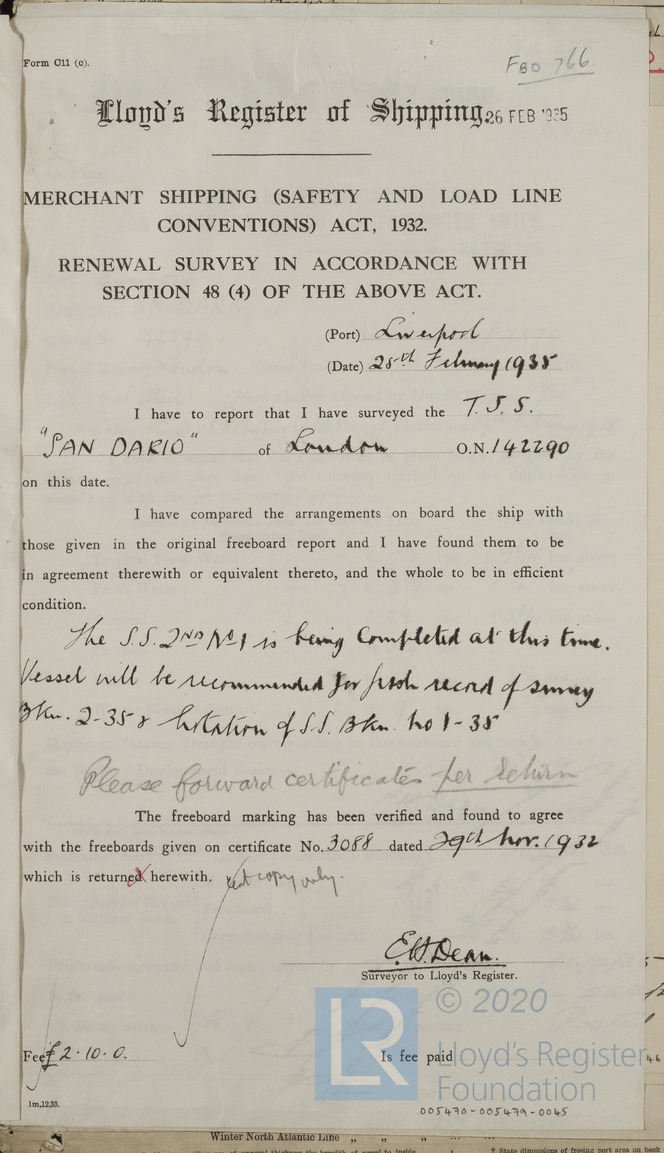 Form C11 (c).
FBO 766.
Lloyd's Register of Shipping 26 FEB 1935
MERCHANT SHIPPING (SAFETY AND LOAD LINE
CONVENTIONS) ACT, 1932.
RENEWAL SURVEY IN ACCORDANCE WITH
SECTION 48 (4) OF THE ABOVE ACT.
(Port) Liverpool
(Date) 25th February 1935
I have to report that I have surveyed the T.S.S.
"SAN DARIO" of London O.N. 142290
on this date.
I have compared the arrangements on board the ship with
those given in the original freeboard report and I have found them to be
in agreement therewith or equivalent thereto, and the whole to be in efficient
condition.
The S.S. 2ND No 1 is being completed at this time.
Vessel will be recommended for fresh record of survey
Bkn. 2-35 & Notation of S.S. Bkn. No 1-35
Please forward certificates per return
The freeboard marking has been verified and found to agree
with the freeboards given on certificate No. 3088 dated 29th Nov. 1932
which is returned herewith. copy only.
E.H. Dean.
Surveyor to Lloyd's Register.
© 2020
LR
Lloyd's Register
Foundation
Fee £2.10.0. Is fee paid
1m,12,33.
005470-005479-0045
Winter North Atlantic Line " " "
† State dimensions of freeing port area on back